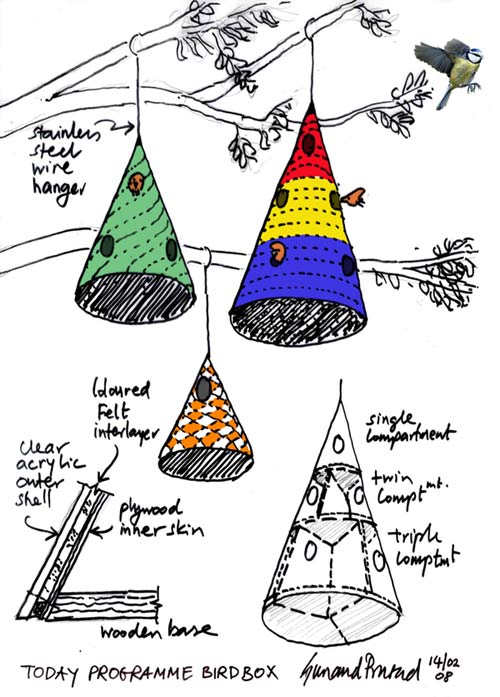 stainless
steel
wire
hanger
Coloured
Felt
interlayer
clear
acrylic
outer
shell
plywood
inner skin
wooden base
single
compartment
twin
comptmt.
triple
comptmt
TODAY PROGRAMME BIRDBOX
14/02
08